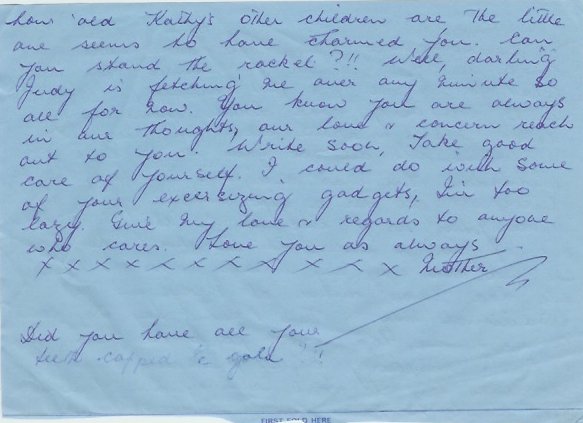 how old Kathy's other children are the little
one seems to have charmed you. Can
you stand the racket?!! Well, darling
Judy is fetching me over any minute so
all for now. You know you are always
in our thoughts, our love & concern reach
out to you. Write soon, Take good
care of yourself. I could do with some
of your excersizing gadgets, I'm too
lazy. Give my love & regards to anyone
who cares. Love you as always
x x x x x x x x x x x x Mother
Did you have all your
teeth capped in gold?!!
FIRST FOLD HERE